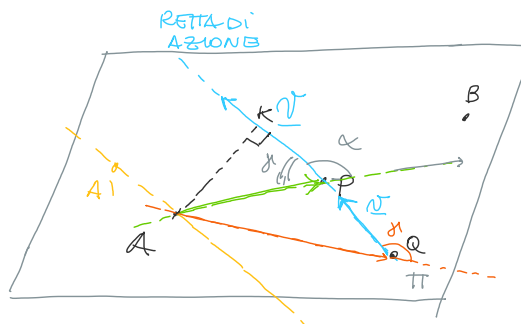 RETTA DI
AZIONE
K
v
B
α
γ
A1
P
v
A
γ
Q
π